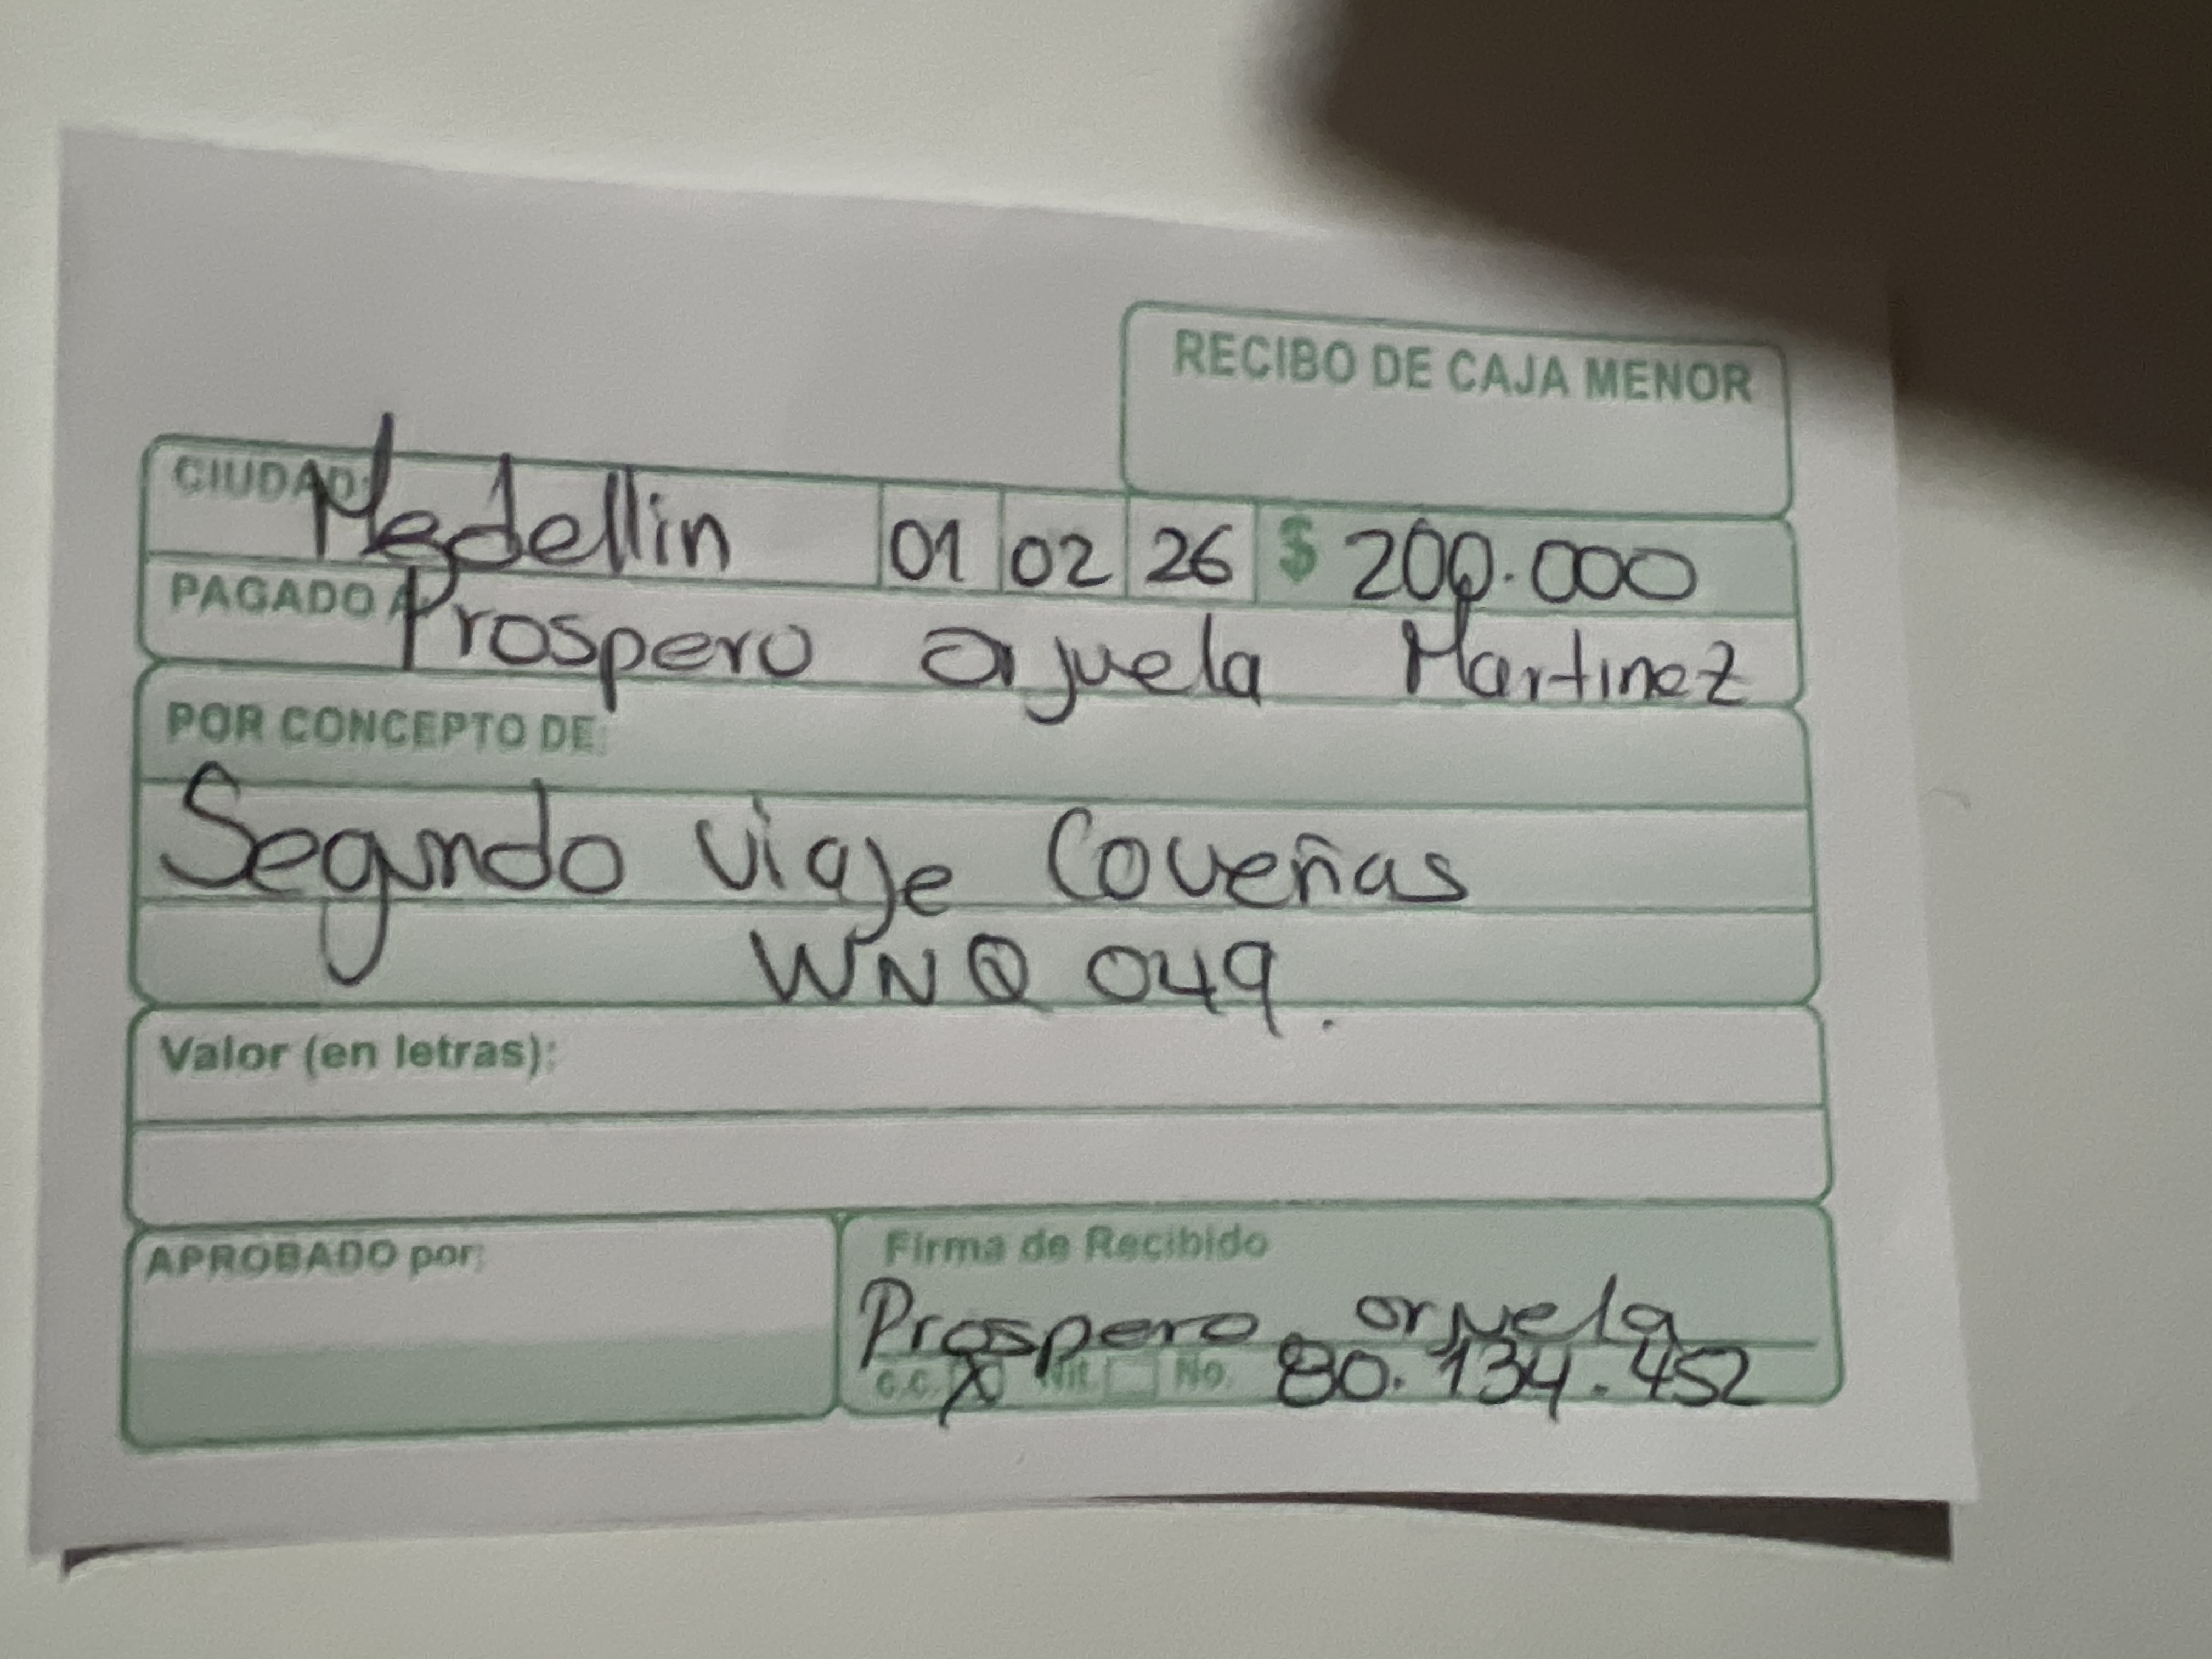 RECIBO DE CAJA MENOR
CIUDAD: Medellin 01 02 26 $ 200.000
PAGADO A: Prospero orjuela Martinez
POR CONCEPTO DE:
Segundo viaje Coveñas
WNQ 049.
Valor (en letras):
APROBADO por:
Firma de Recibido
Prospero orjuela
C.C. X Nit. No. 80.134.452